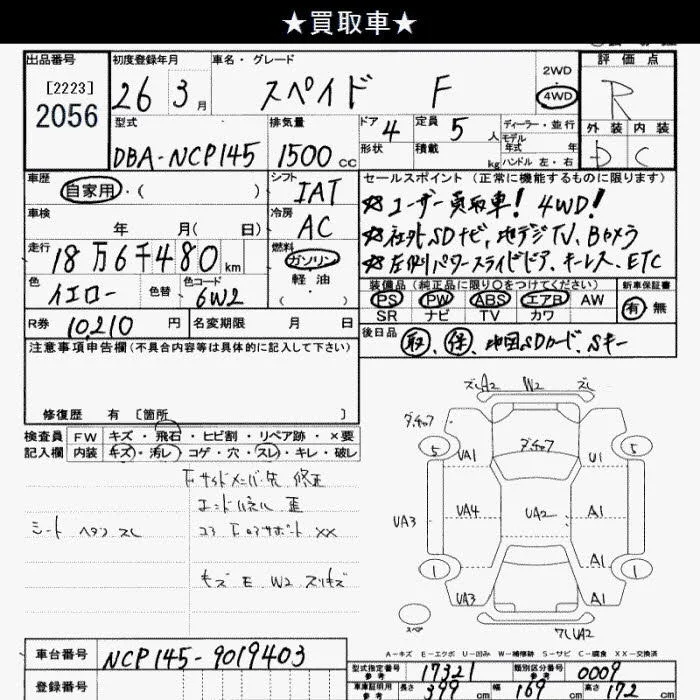 ★買取車★
出品番号
[2223]
2056
初度登録年月
26 3月
車名・グレード
スペイド F
2WD
4WD
評価点
R
外装 内装
D C
型式
DBA-NCP145
排気量
1500cc
ドア 4
形状
定員 5人
積載 kg
ディーラー・並行
モデル
年式 年
ハンドル 左・右
車歴
自家用・( )
シフト
IAT
セールスポイント (正常に機能するものに限ります)
☆ユーザー買取車! 4WD!
☆社外SDナビ,地デジTV,Bカメラ
☆左側パワースライドドア、キーレス、ETC
車検
年 月( 日)
冷房
AC
走行
18万6千480km
燃料
ガソリン
軽油
( )
色
イエロー
色替
色コード
6W2
装備品 (純正品に限り○をつけてください)
PS PW ABS エアB AW
SR ナビ TV カワ
新車保証書
有 無
R券 10,210円
名変期限 月 日
後日品
取、保、地図SDカード、Sキー
注意事項申告欄(不具合内容等は具体的に記入して下さい)
修復歴 有 [箇所 ]
検査員
記入欄
FW キズ・飛石・ヒビ割・リペア跡・×要
内装 キズ・汚レ・コゲ・穴・スレ・キレ・破レ
Fサイドメンバー先 修正
エンドパネル 歪
コア サポート XX
シート ヘタリ スレ
キズ E W2 スリキズ
ズレA2 W2 ズレ
ダチャク
5 5
UA1 ダチャク U1
UA3 UA4 UA2 A1
A1
1 1
UA3 A1
スペア
ズレUA2
A-キズ E-エクボ U-凹み W-補修跡 S-サビ C-腐食 XX-交換済
車台番号 NCP145-9019403
登録番号
型式指定番号
参考
17321
類別区分番号
参考
0009
車庫証明用
参考
長さ 399cm 幅 169cm 高さ 172cm